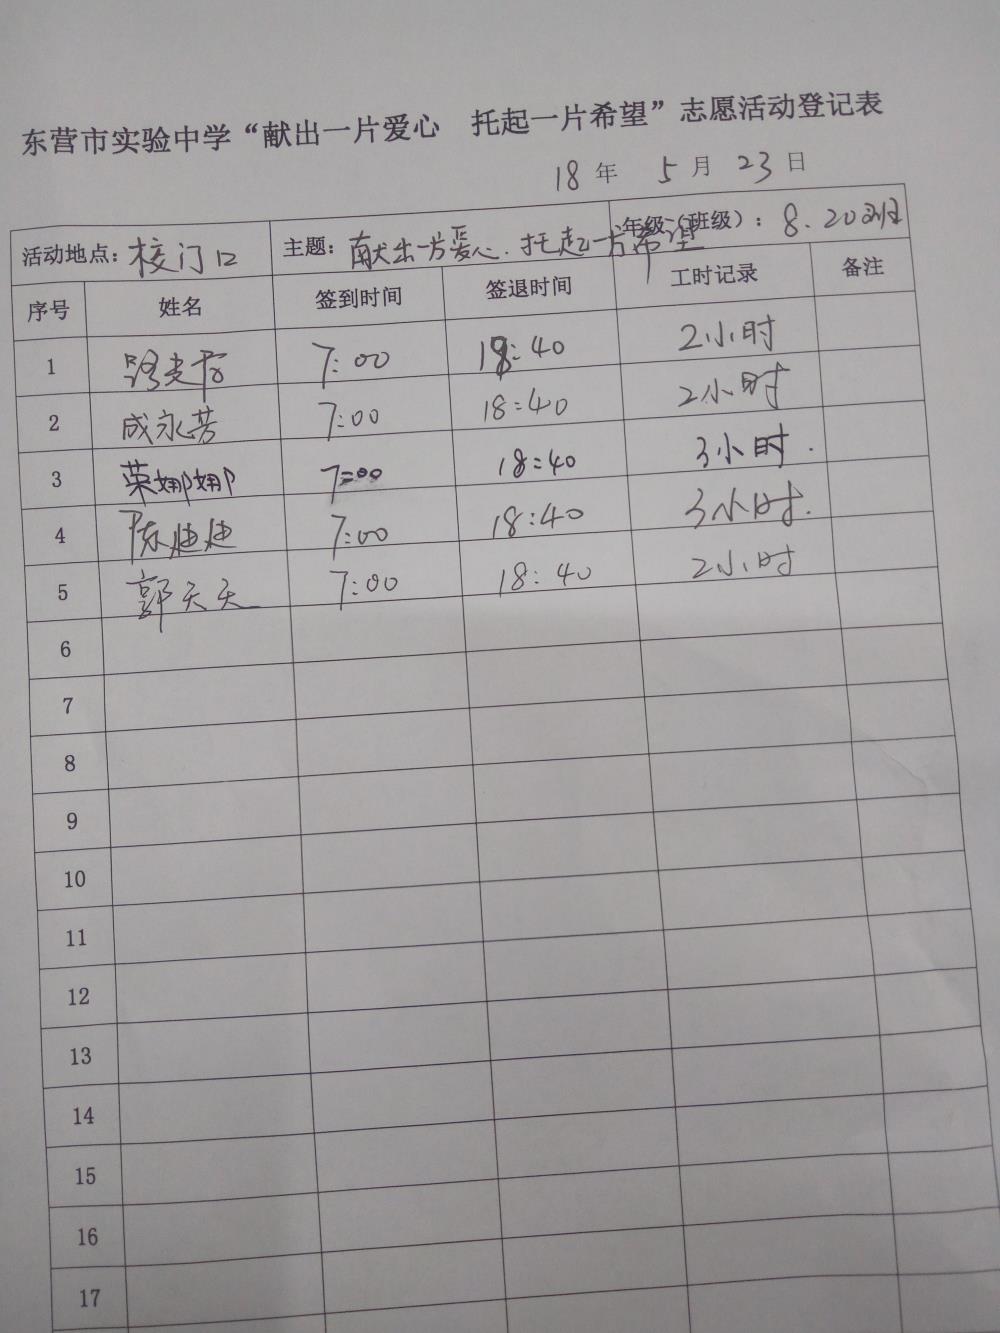 东营市实验中学“献出一片爱心　托起一片希望”志愿活动登记表
18 年 5 月 23 日
活动地点：校门口 主题：献出一片爱心．托起一片希望 年级（班级）：8．20班
序号 姓名 签到时间 签退时间 工时记录 备注
1 7:00 18:40 2小时
2 成永芳 7:00 18:40 2小时
3 荣娜娜 7:00 18:40 3小时．
4 陈建建 7:00 18:40 3小时．
5 郭天天 7:00 18:40 2小时
6
7
8
9
10
11
12
13
14
15
16
17